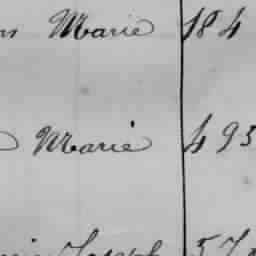 Marie 184
Marie 493
Joseph 57